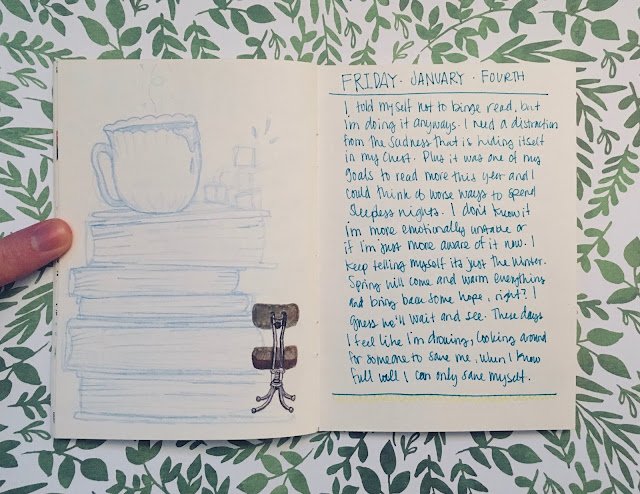 FRIDAY · JANUARY · FOURTH
I told myself not to binge read, but
i'm doing it anyways. I need a distraction
from the sadness that is hiding itself
in my chest. Plus it was one of my
goals to read more this year and I
could think of worse ways to spend
sleepless nights. I don't know if
i'm more emotionally unstable or
if i'm just more aware of it now. I
keep telling myself its just the winter.
Spring will come and warm everything
and bring back some hope, right? I
guess we'll wait and see. These days
I feel like I'm drowing, looking around
for someone to save me, when I know
full well I can only save myself.